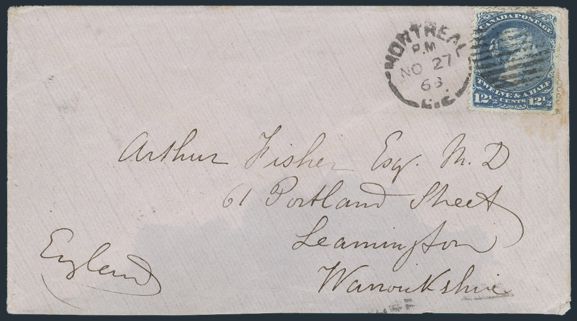 MONTREAL
P.M
NO 27
68
C.E
CANADA POSTAGE
TWELVE & A HALF
12½ CENTS 12½
Arthur Fisher Esq. M.D
61 Portland Street
Leamington
Warwickshire
England